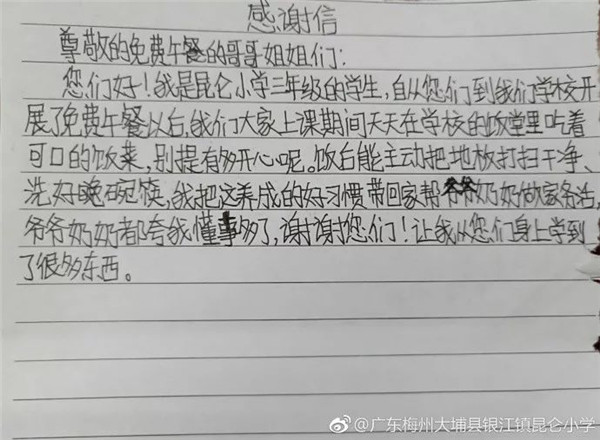 感谢信
尊敬的免费午餐的哥哥姐姐们:
您们好!我是昆仑小学三年级的学生,自从您们到我们学校开
展了免费午餐以后,我们大家上课期间天天在学校的饭堂里吃着
可口的饭菜,别提有多开心呢。饭后能主动把地板打扫干净、
洗好晚碗筷,我把这养成的好习惯带回家帮爷爷奶奶做家务活,
爷爷奶奶都夸我懂事多了,谢谢您们!让我从您们身上学到
了很多东西。
@广东梅州大埔县银江镇昆仑小学